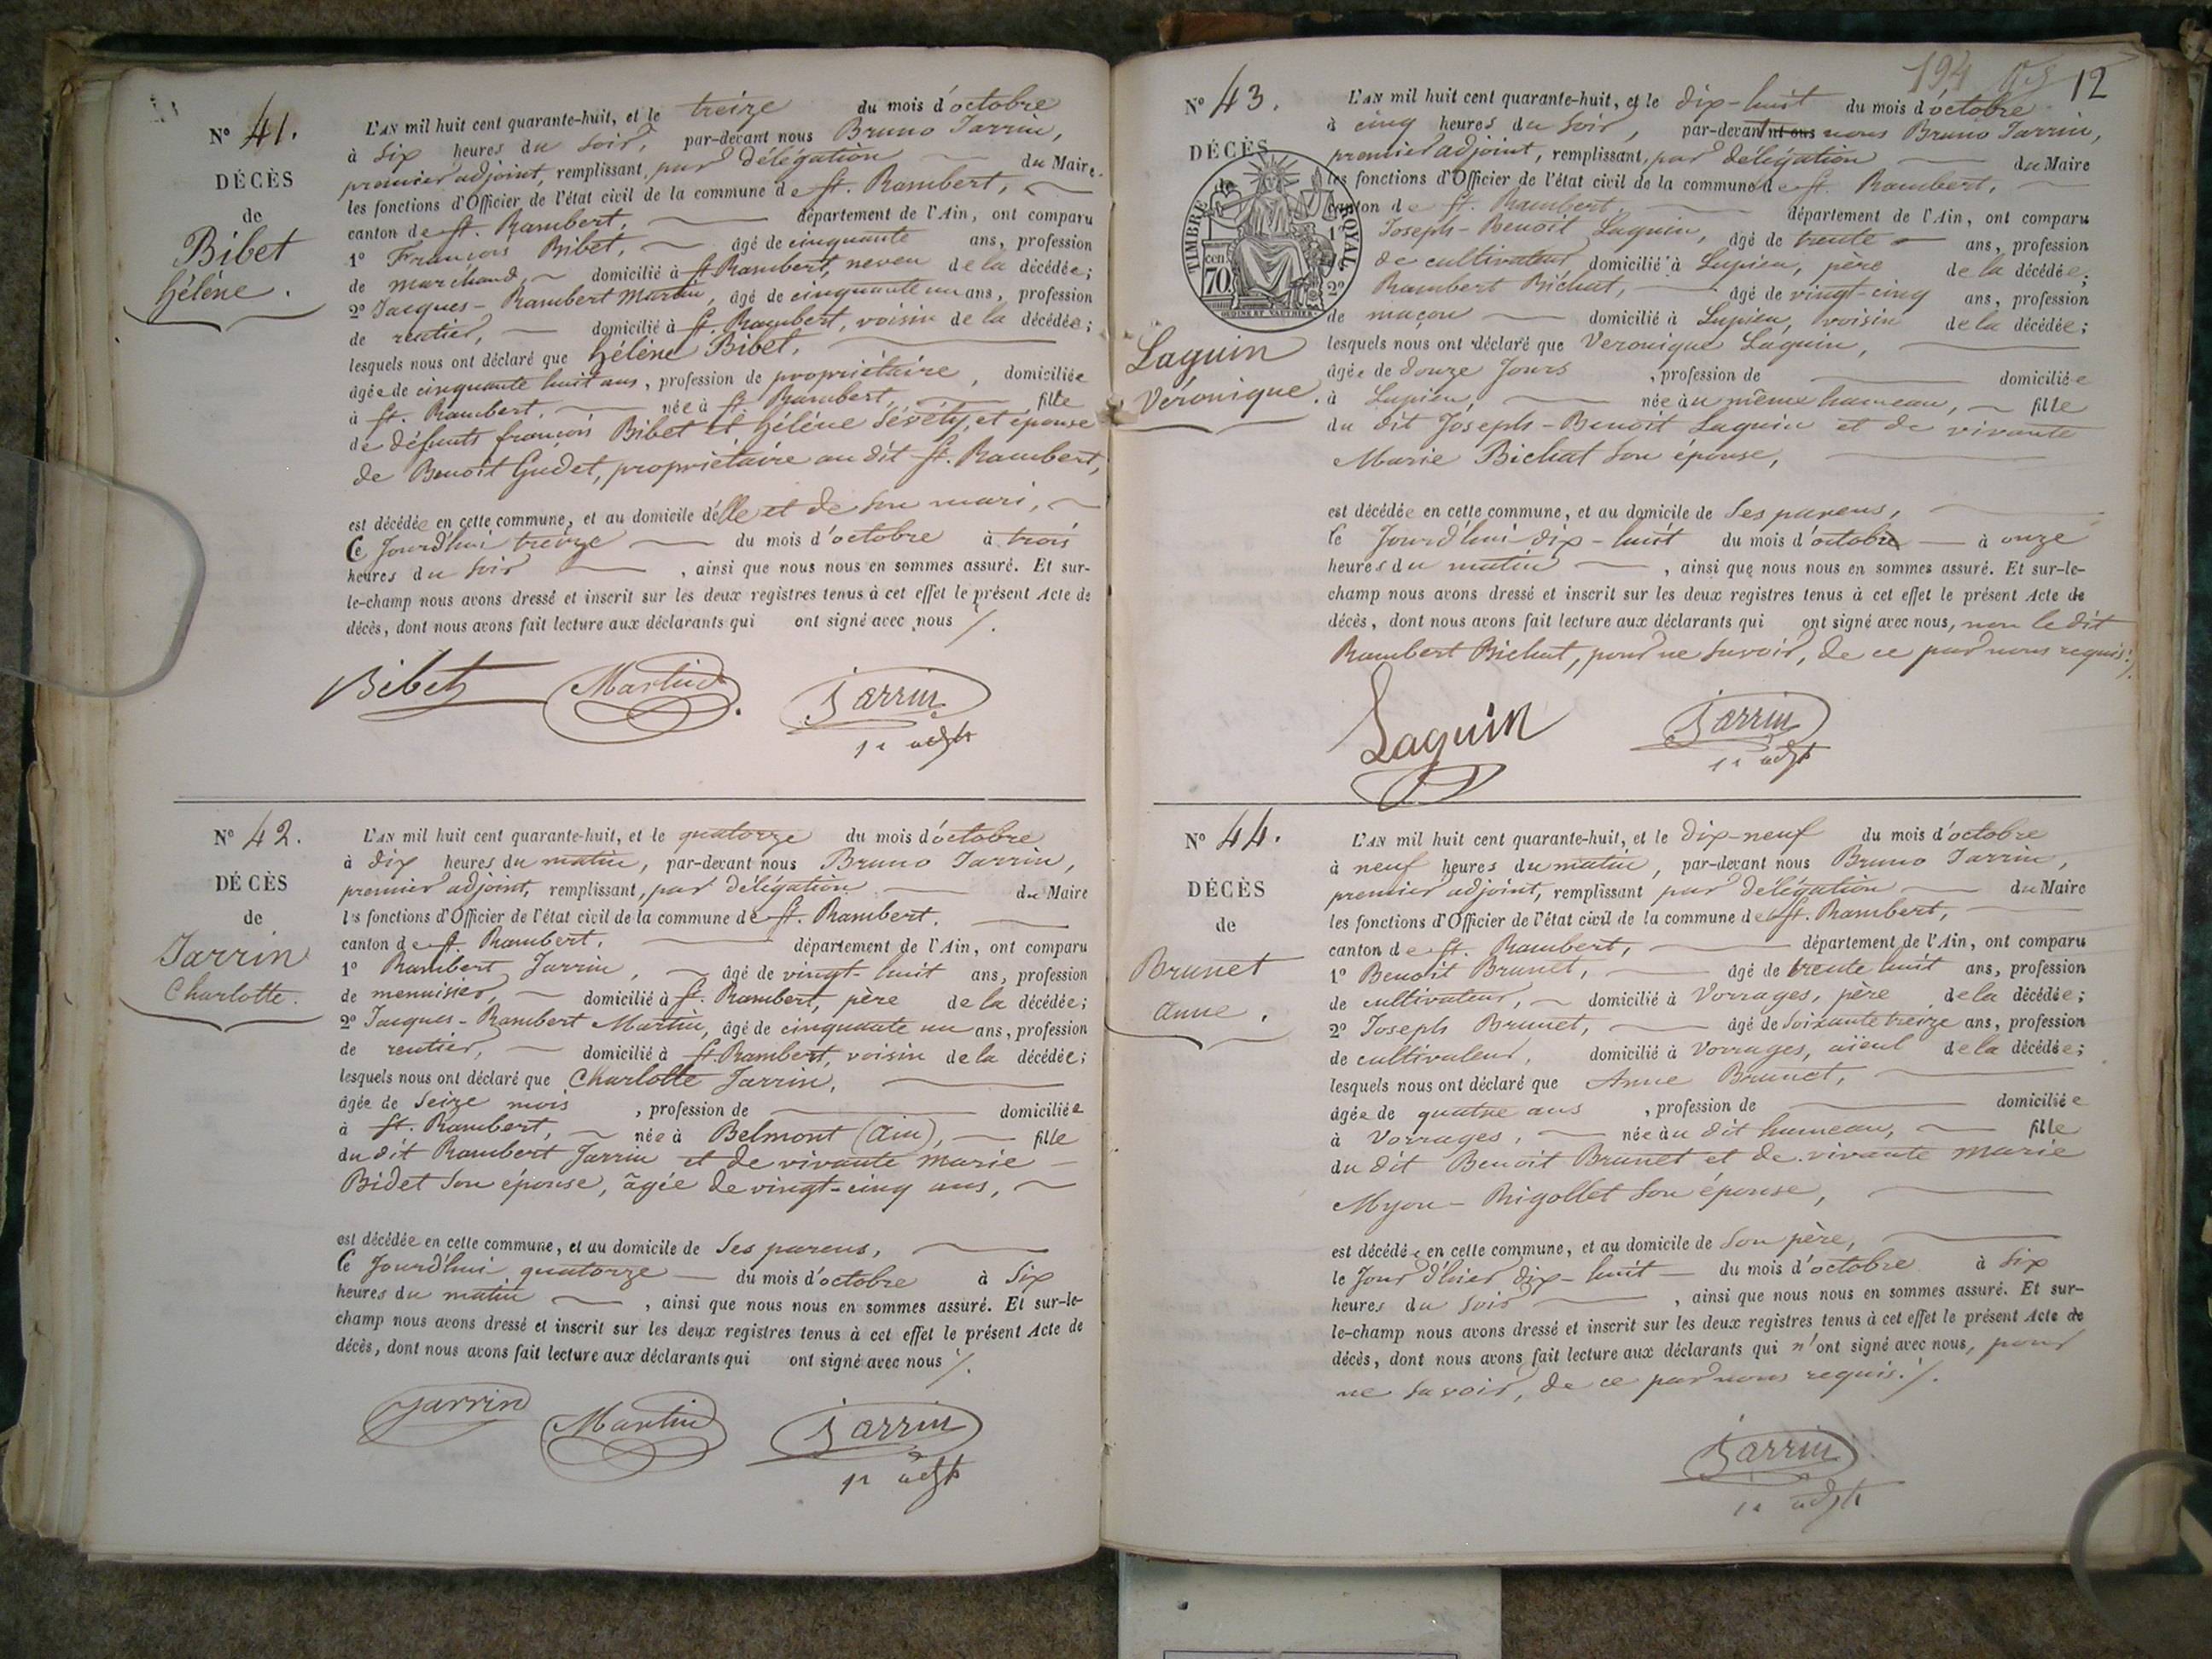 N° 41.
DÉCÈS
de
Bibet
hélène.
L'AN mil huit cent quarante-huit, et le treize du mois d'octobre
à six heures du soir, par-devant nous Bruno Jarrin,
premier adjoint, remplissant, par délégation du Maire
les fonctions d'Officier de l'état civil de la commune de St. Rambert,
canton de St. Rambert, département de l'Ain, ont comparu
1° François Bibet, âgé de cinquante ans, profession
de marchand, domicilié à St Rambert, neveu de la décédée;
2° Jacques-Rambert Martin, âgé de cinquante un ans, profession
de rentier, domicilié à St. Rambert, voisin de la décédée;
lesquels nous ont déclaré que hélène Bibet,
âgée de cinquante huit ans, profession de propriétaire, domiciliée
à St. Rambert, née à St Rambert, fille
de défunts françois Bibet et hélène Sévély, et épouse
de Benoit Gudet, propriétaire au dit St. Rambert,
est décédée en cette commune, et au domicile d'elle et de son mari,
Ce Jourd'hui treize du mois d'octobre à trois
heures du soir, ainsi que nous nous en sommes assuré. Et sur-
le-champ nous avons dressé et inscrit sur les deux registres tenus à cet effet le présent Acte de
décès, dont nous avons fait lecture aux déclarants qui ont signé avec nous /.
Bibet Martin Jarrin
1er adjt
N° 42.
DÉCÈS
de
Jarrin
Charlotte.
L'AN mil huit cent quarante-huit, et le quatorze du mois d'octobre
à dix heures du matin, par-devant nous Bruno Jarrin,
premier adjoint, remplissant, par délégation du Maire
les fonctions d'Officier de l'état civil de la commune de St. Rambert,
canton de St. Rambert, département de l'Ain, ont comparu
1° Rambert Jarrin, âgé de vingt-huit ans, profession
de menuisier, domicilié à St. Rambert, père de la décédée;
2° Jacques-Rambert Martin, âgé de cinquante un ans, profession
de rentier, domicilié à St. Rambert, voisin de la décédée;
lesquels nous ont déclaré que Charlotte Jarrin,
âgée de Seize mois, profession de domiciliée
à St. Rambert, née à Belmont (Ain), fille
du dit Rambert Jarrin et de vivante Marie
Bidet son épouse, âgée de vingt-cinq ans,
est décédée en cette commune, et au domicile de Ses parens,
Ce Jourd'hui quatorze du mois d'octobre à Six
heures du matin, ainsi que nous nous en sommes assuré. Et sur-le-
champ nous avons dressé et inscrit sur les deux registres tenus à cet effet le présent Acte de
décès, dont nous avons fait lecture aux déclarants qui ont signé avec nous /.
Jarrin Martin Jarrin
1er adjt
194 12
N° 43.
DÉCÈS
de
TIMBRE ROYAL
70 cen
Laguin
Véronique.
L'AN mil huit cent quarante-huit, et le dix-huit du mois d'octobre
à cinq heures du soir, par-devant nous Bruno Jarrin,
premier adjoint, remplissant, par délégation du Maire
les fonctions d'Officier de l'état civil de la commune de St. Rambert,
canton de St. Rambert, département de l'Ain, ont comparu
1° Joseph-Benoit Laguin, âgé de trente ans, profession
de cultivateur domicilié à Lupieu, père de la décédée;
2° Rambert Bichat, âgé de vingt-cinq ans, profession
de maçon domicilié à Lupieu, voisin de la décédée;
lesquels nous ont déclaré que Veronique Laguin,
âgée de Douze Jours, profession de domiciliée
à Lupieu, née au même hameau, fille
du dit Joseph-Benoit Laguin et de vivante
Marie Bichat son épouse,
est décédée en cette commune, et au domicile de Ses parens,
le Jourd'hui dix-huit du mois d'octobre à onze
heures du matin, ainsi que nous nous en sommes assuré. Et sur-le-
champ nous avons dressé et inscrit sur les deux registres tenus à cet effet le présent Acte de
décès, dont nous avons fait lecture aux déclarants qui ont signé avec nous, non le dit
Rambert Bichat, pour ne savoir, de ce par nous requis /.
Laguin Jarrin
1er adjt
N° 44.
DÉCÈS
de
Brunet
anne.
L'AN mil huit cent quarante-huit, et le dix-neuf du mois d'octobre
à neuf heures du matin, par-devant nous Bruno Jarrin,
premier adjoint, remplissant par délégation du Maire
les fonctions d'Officier de l'état civil de la commune de St. Rambert,
canton de St. Rambert, département de l'Ain, ont comparu
1° Benoit Brunet, âgé de trente huit ans, profession
de cultivateur, domicilié à Vorrages, père de la décédée;
2° Joseph Brunet, âgé de Soixante treize ans, profession
de cultivateur, domicilié à Vorrages, aïeul de la décédée;
lesquels nous ont déclaré que Anne Brunet,
âgée de quatre ans, profession de domiciliée
à Vorrages, née au dit hameau, fille
du dit Benoit Brunet et de vivante Marie
Myon-Rigollet son épouse,
est décédée en cette commune, et au domicile de Son père,
le Jour d'hier dix-huit du mois d'octobre à Six
heures du soir, ainsi que nous nous en sommes assuré. Et sur-
le-champ nous avons dressé et inscrit sur les deux registres tenus à cet effet le présent Acte de
décès, dont nous avons fait lecture aux déclarants qui n'ont signé avec nous, pour
ne savoir, de ce par nous requis. /.
Jarrin
1er adjt